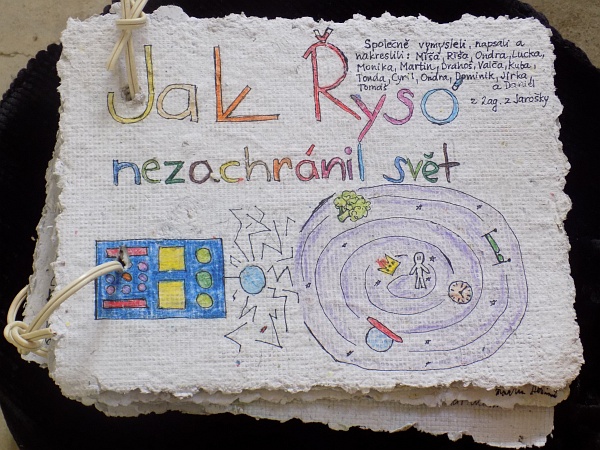 Společně vymysleli, napsali a
nakreslili: Míša, Ríša, Ondra, Lucka,
Monika, Martin, Drahoš, Valča, Kuba,
Tonda, Cyril, Ondra, Dominik, Jirka,
Tomáš a Daniel
z 2.ag. z Jarošky
Jak Řyso
nezachránil svět